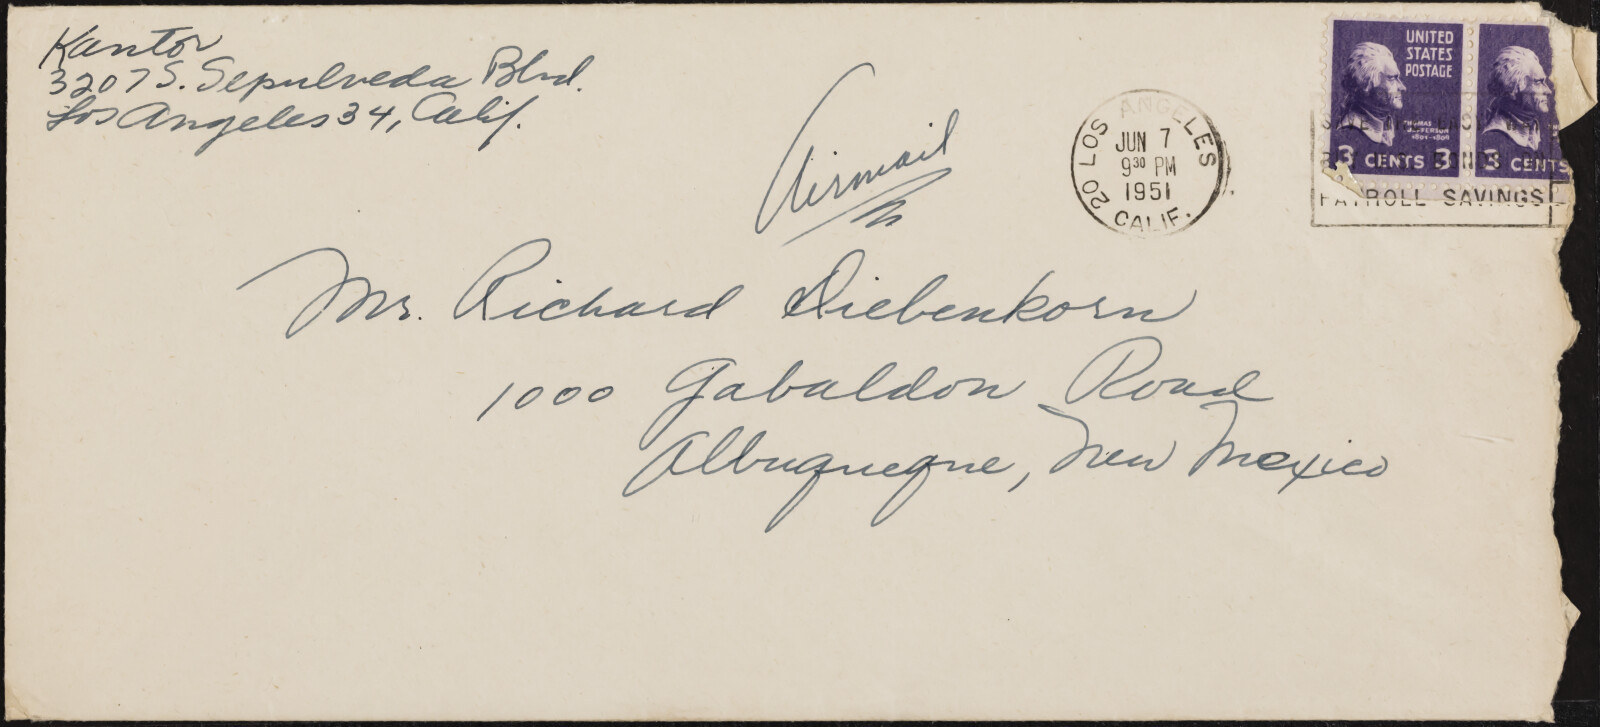 Kantor
3207 S. Sepulveda Blvd.
Los Angeles 34, Calif.
Airmail
LOS ANGELES 20
JUN 7
9 30 PM
1951
CALIF.
UNITED
STATES
POSTAGE
THOMAS
JEFFERSON
3 CENTS 3
3 CENTS
BONDS
PAYROLL SAVINGS
Mr. Richard Diebenkorn
1000 Gabaldon Road
Albuquerque, New Mexico